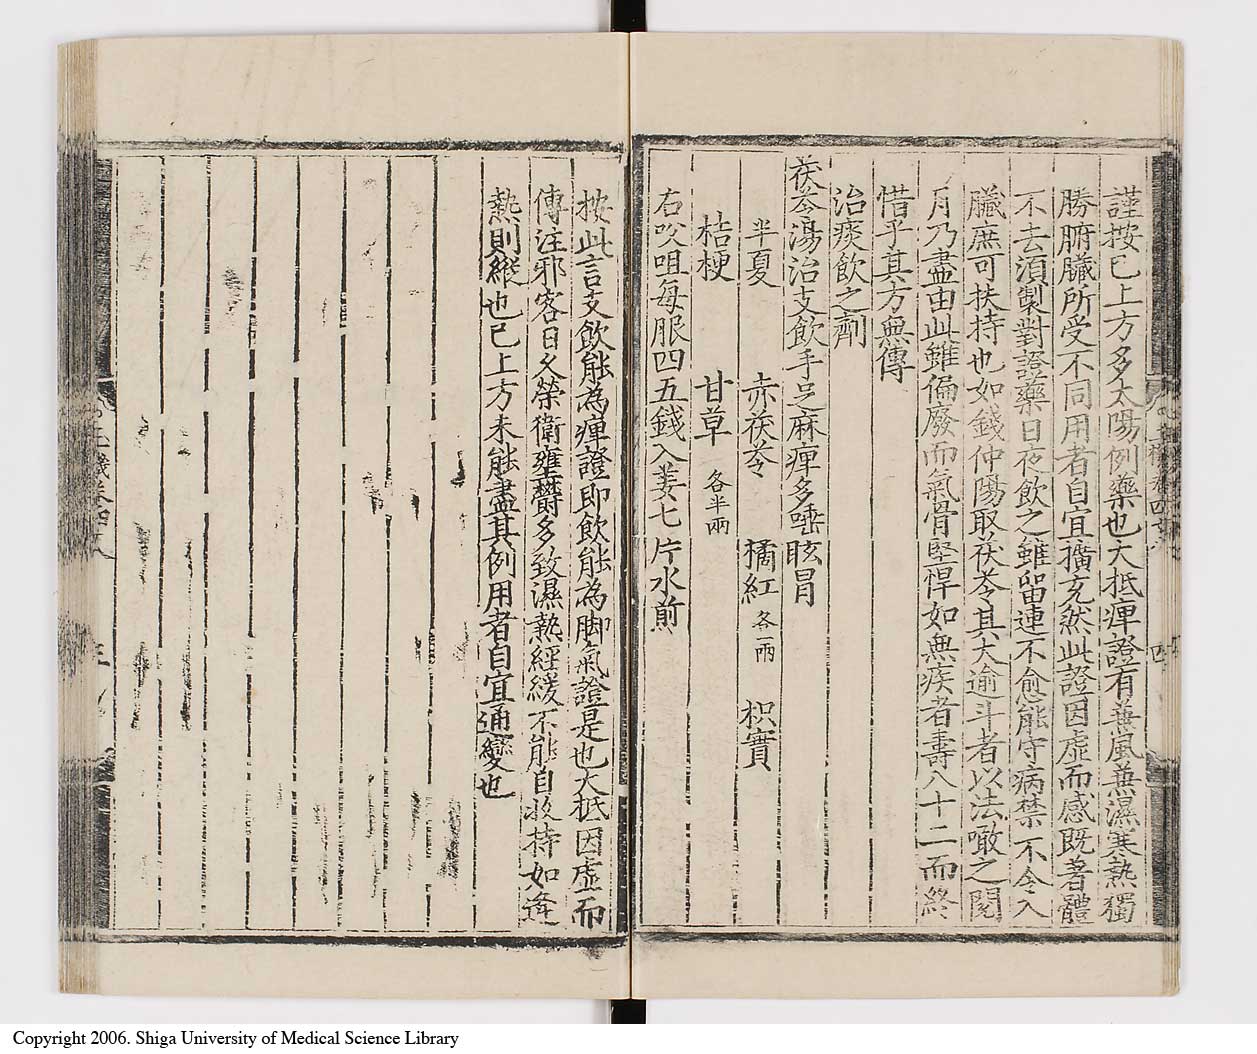 謹按已上方多太陽例藥也大抵痺證有兼風兼濕寒熱獨
勝腑臟所受不同用者自宜擴充然此證因虛而感既著體
不去須製對證藥日夜飲之雖留連不愈能守病禁不令入
臟庶可扶持也如錢仲陽取茯苓其大逾斗者以法噉之閱
月乃盡由此雖偏廢而氣骨堅悍如無疾者壽八十二而終
惜乎其方無傳
治痰飲之劑
茯苓湯治支飲手足麻痺多唾眩冒
半夏 赤茯苓 橘紅各一兩 枳實
桔梗 甘草各半兩
右㕮咀每服四五錢入姜七片水煎
按此言支飲能為痺證即飲能為脚氣證是也大抵因虛而
傳注邪客日久榮衛壅鬱多致濕熱經緩不能自收持如逢
熱則縱也已上方未能盡其例用者自宜通變也
Copyright 2006. Shiga University of Medical Science Library